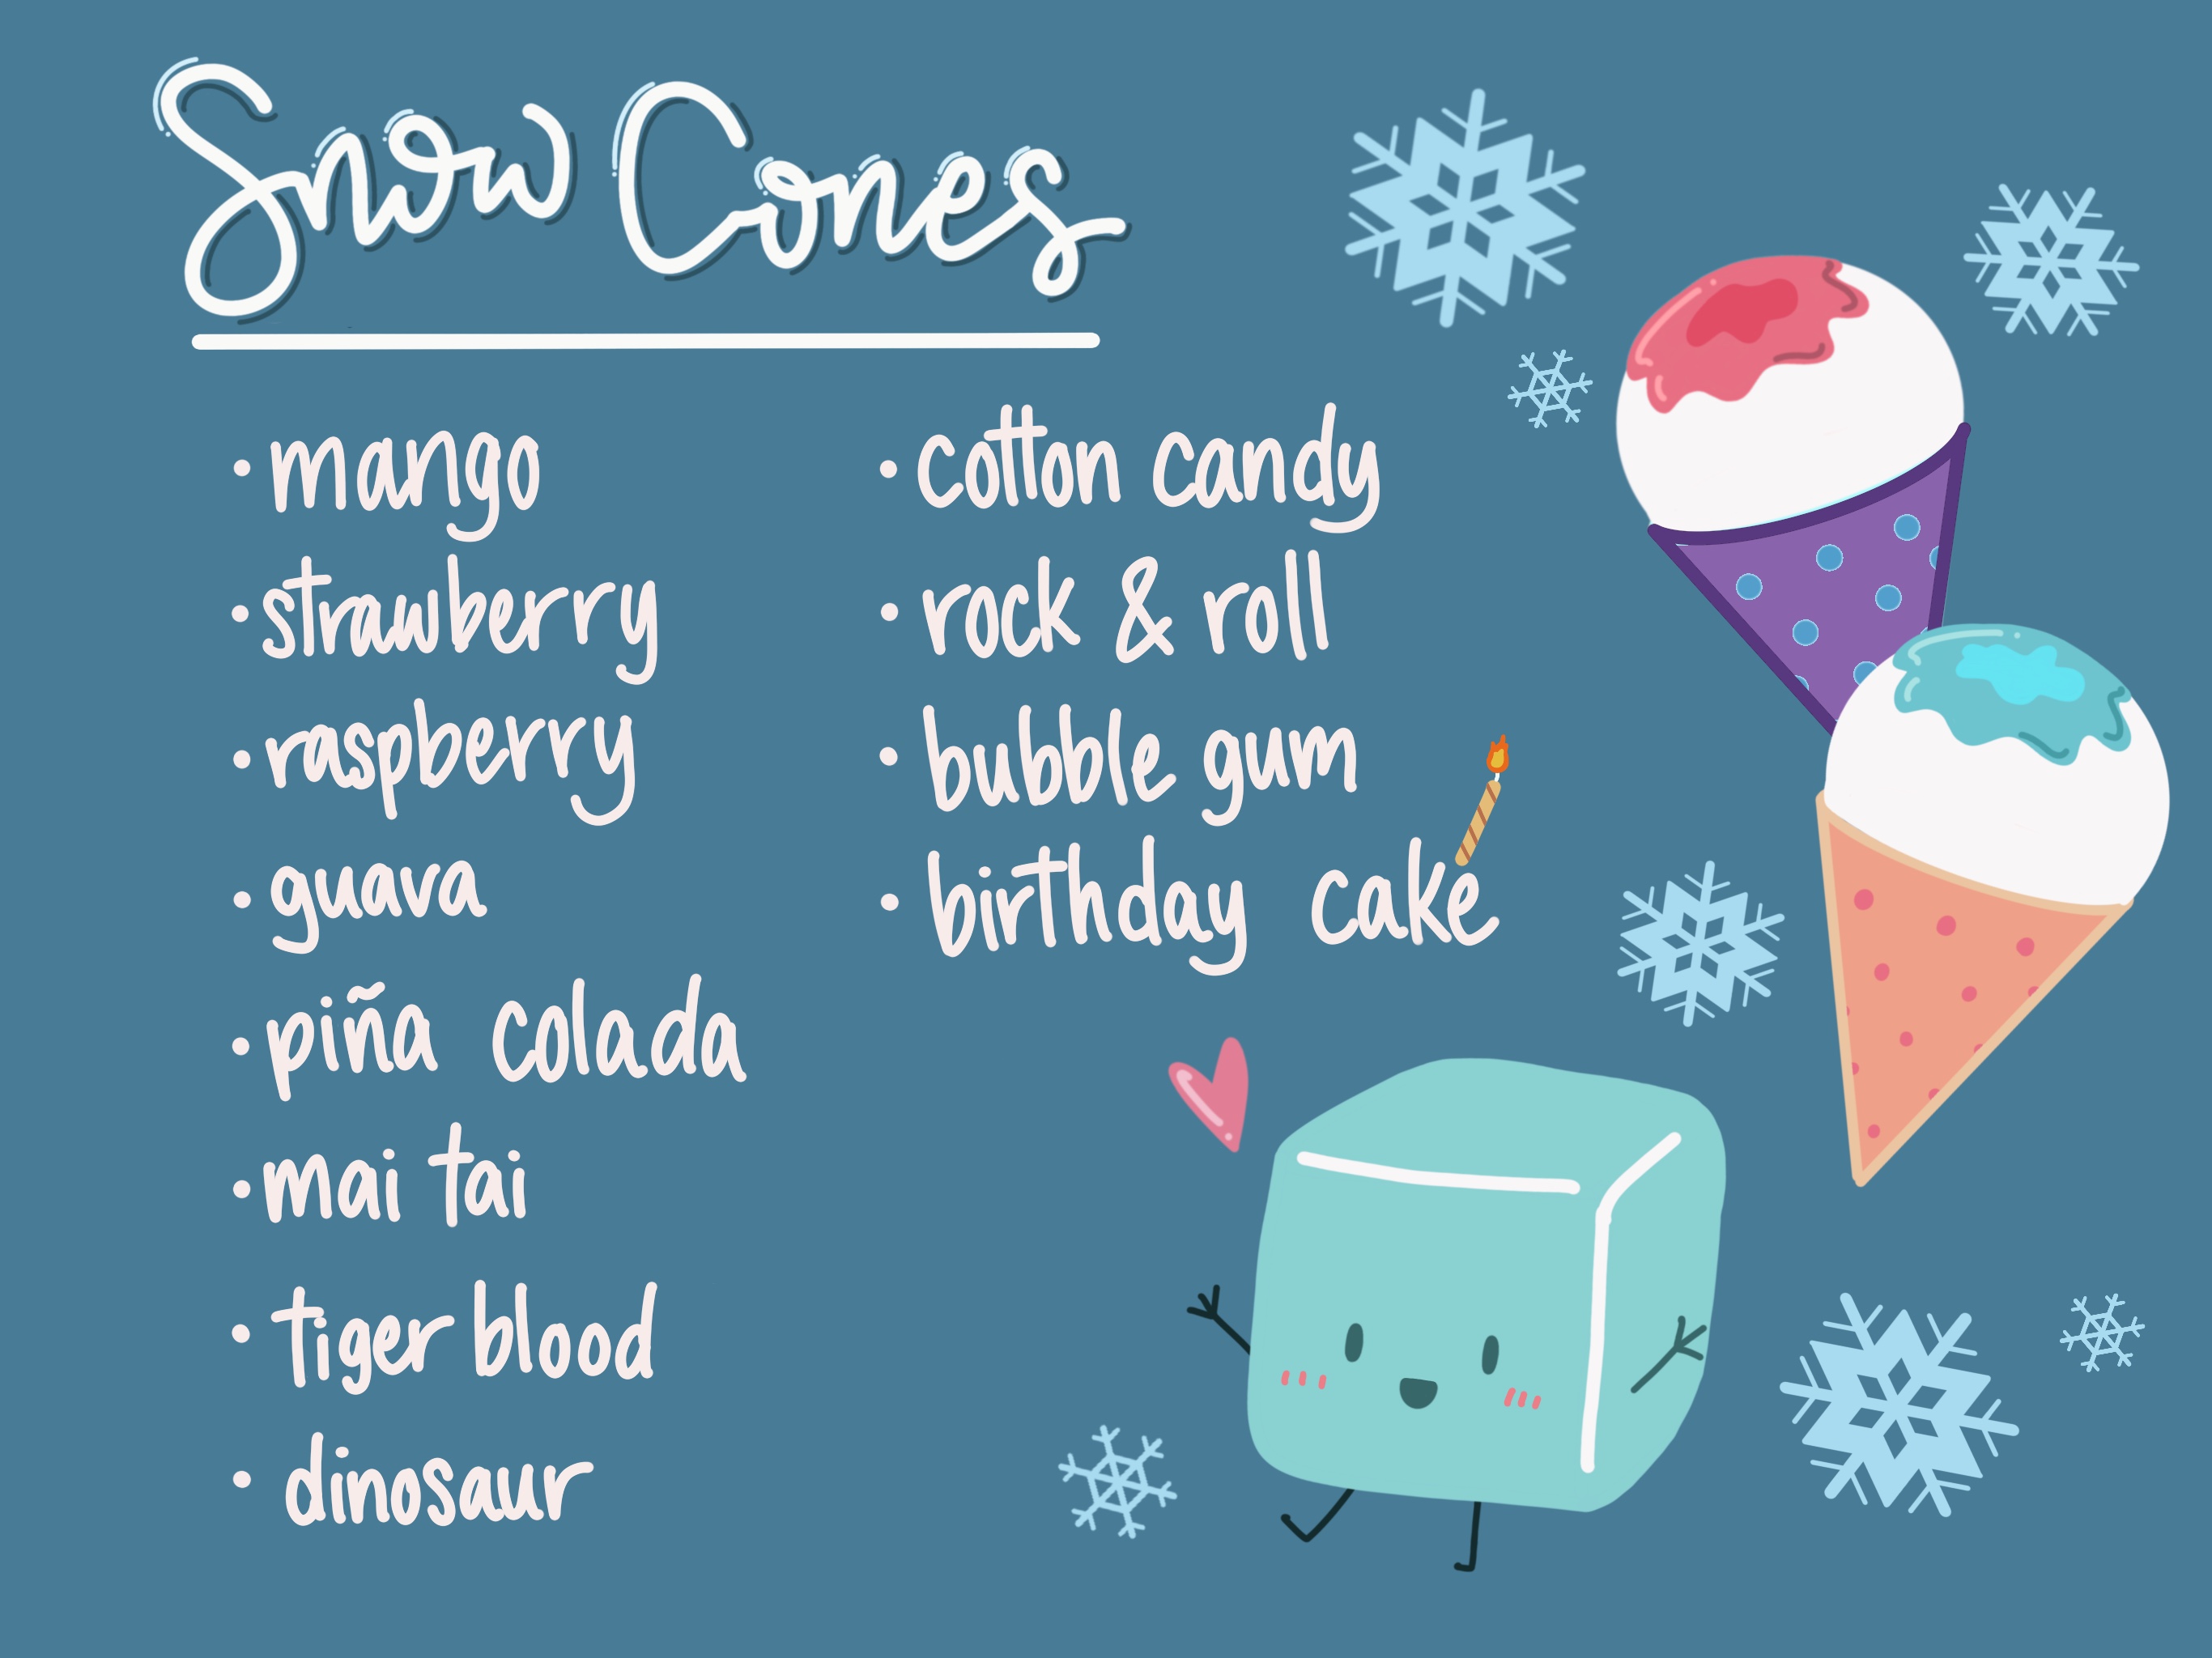 Snow Cones
• mango
• strawberry
• raspberry
• guava
• piña colada
• mai tai
• tiger blood
• dinosaur
• cotton candy
• rock & roll
• bubble gum
• birthday cake